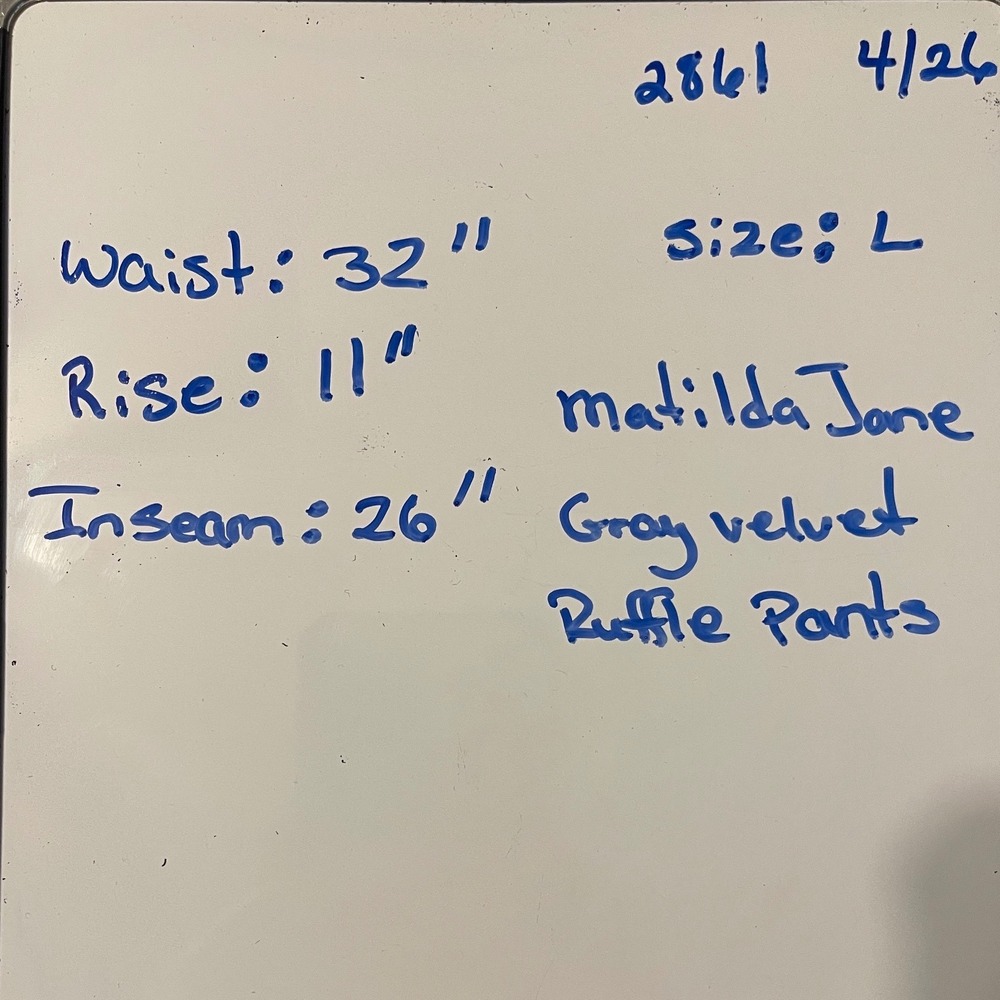 2861 4/26
Waist: 32"
Size: L
Rise: 11"
Matilda Jane
Inseam: 26"
Gray velvet
Ruffle Pants